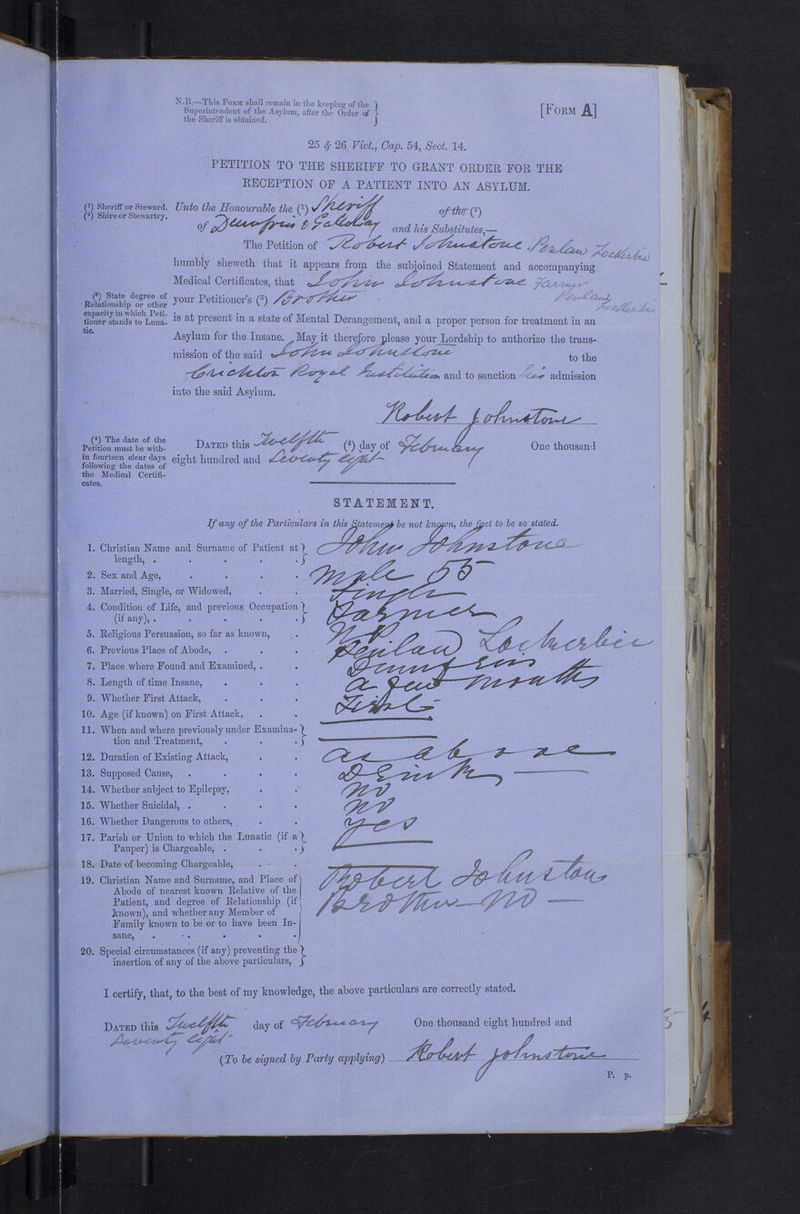 N.B.—This Form shall remain in the keeping of the
Superintendent of the Asylum, after the Order of
the Sheriff is obtained.
[Form A]
25 & 26 Vict., Cap. 54, Sect. 14.
PETITION TO THE SHERIFF TO GRANT ORDER FOR THE
RECEPTION OF A PATIENT INTO AN ASYLUM.
(1) Sheriff or Steward.
(2) Shire or Stewartry.
Unto the Honourable the (1) Sheriff of the (2)
of Dumfries & Galloway and his Substitutes,—
The Petition of Robert Johnstone Penlaw Lockerbie
humbly sheweth that it appears from the subjoined Statement and accompanying
Medical Certificates, that John Johnstone Farmer
Penlaw Lockerbie
(3) State degree of
Relationship or other
capacity in which Peti-
tioner stands to Luna-
tic.
your Petitioner's (3) Brother
is at present in a state of Mental Derangement, and a proper person for treatment in an
Asylum for the Insane. May it therefore please your Lordship to authorize the trans-
mission of the said John Johnstone to the
Crichton Royal Institution and to sanction his admission
into the said Asylum.
Robert Johnstone
(4) The date of the
Petition must be with-
in fourteen clear days
following the dates of
the Medical Certifi-
cates.
Dated this Twelfth (4) day of February One thousand
eight hundred and Seventy eight
STATEMENT.
If any of the Particulars in this Statement be not known, the fact to be so stated.
1. Christian Name and Surname of Patient at length, . . . . . John Johnstone
2. Sex and Age, . . . . Male 55
3. Married, Single, or Widowed, . . Single
4. Condition of Life, and previous Occupation (if any), . . . . . Farmer
5. Religious Persuasion, so far as known, . . U.P.
6. Previous Place of Abode, . . . Penlaw Lockerbie
7. Place where Found and Examined, . . Dumfries
8. Length of time Insane, . . . a few months
9. Whether First Attack, . . . First
10. Age (if known) on First Attack, . .
11. When and where previously under Examina-
tion and Treatment, . . .
12. Duration of Existing Attack, . . as above
13. Supposed Cause, . . . . Drink
14. Whether subject to Epilepsy, . . no
15. Whether Suicidal, . . . . no
16. Whether Dangerous to others, . . yes
17. Parish or Union to which the Lunatic (if a
Pauper) is Chargeable, . . .
18. Date of becoming Chargeable, . - .
19. Christian Name and Surname, and Place of
Abode of nearest known Relative of the
Patient, and degree of Relationship (if
known), and whether any Member of
Family known to be or to have been In-
sane, . . . . .
Robert Johnstone
Brother — no —
20. Special circumstances (if any) preventing the
insertion of any of the above particulars,
I certify, that, to the best of my knowledge, the above particulars are correctly stated.
Dated this Twelfth day of February One thousand eight hundred and
Seventy eight
(To be signed by Party applying) Robert Johnstone
P. p.